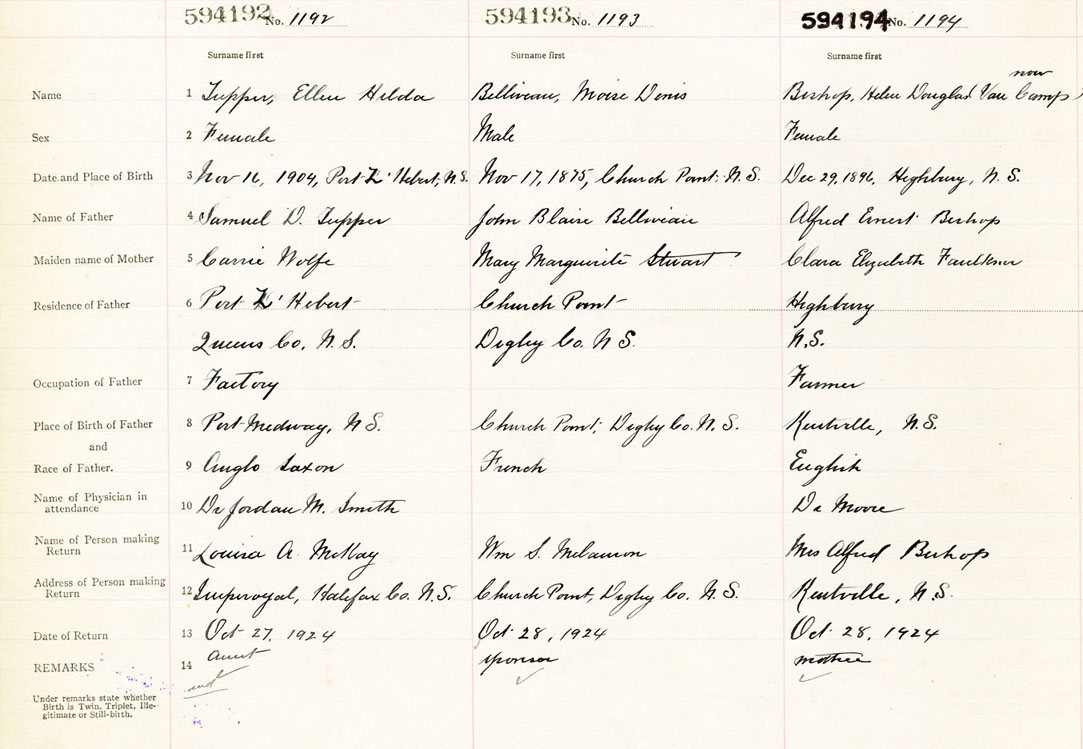 594192 No. 1192 594193 No. 1193 594194 No. 1194
Surname first Surname first Surname first
now
Name 1 Tupper, Ellen Hilda Belliveau, Moise Denis Bishop, Helen Douglas Van Camp
Sex 2 Female Male Female
Date and Place of Birth 3 Nov 16, 1904, Port L'Hebert, N.S. Nov 17, 1875, Church Point, N.S. Dec 29, 1896, Highbury, N.S.
Name of Father 4 Samuel D. Tupper John Blaise Belliveau Alfred Ernest Bishop
Maiden name of Mother 5 Carrie Wolfe Mary Marguerite Stuart Clara Elizabeth Faulkner
Residence of Father 6 Port L'Hebert Church Point Highbury
Queens Co, N.S. Digby Co. N S. N.S.
Occupation of Father 7 Factory Farmer
Place of Birth of Father 8 Port Medway, N S. Church Point, Digby Co. N.S. Kentville, N.S.
and
Race of Father. 9 Anglo Saxon French English
Name of Physician in
attendance 10 Dr Jordan M. Smith Dr Moore
Name of Person making
Return 11 Louisa A. McKay Wm S. Melanson Mrs Alfred Bishop
Address of Person making
Return 12 Imperoyal, Halifax Co. N.S. Church Point, Digby Co. N.S. Kentville, N.S.
Date of Return 13 Oct 27, 1924 Oct 28, 1924 Oct 28, 1924
REMARKS 14 aunt sponsor mother
Under remarks state whether
Birth is Twin, Triplet, Ille-
gitimate or Still-birth.